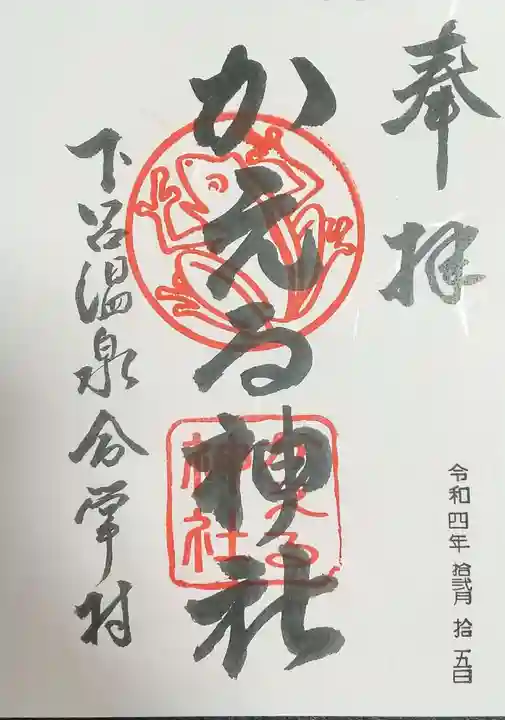 奉拝
令和四年 拾弐月 拾五日
かえる神社
かえる神社
下呂温泉合掌村